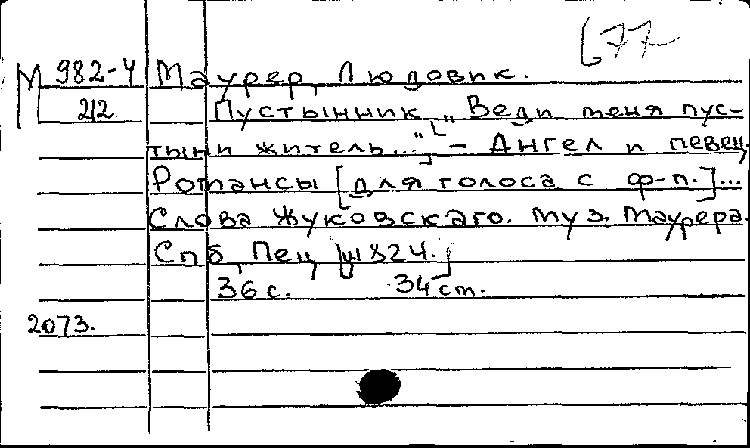 677
М 982-4 Маурер, Людовик.
212 Пустынник „Веди меня пус-
тыни житель...“ – Ангел и певец.
Романсы [для голоса с ф-п.]...
Слова Жуковскаго. муз. Маурера.
Спб, Пец, 1824.]
36 с. 34 см.
2073.